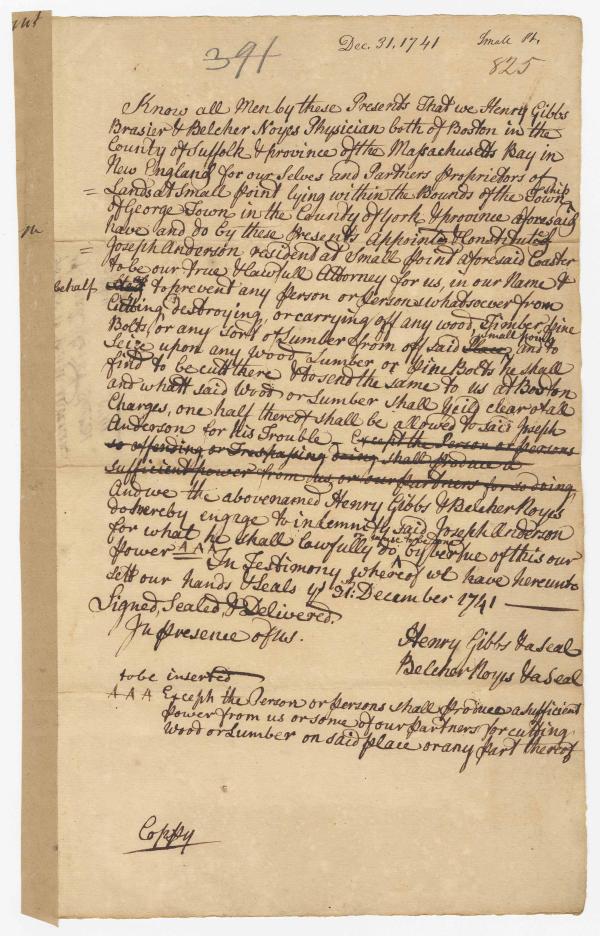 ant
m
391
Dec. 31, 1741
Small Pt.
825
Know all Men by these Presents That we Henry Gibbs
Brasier & Belcher Noyes Physician both of Boston in the
County of Suffolk & province of the Massachusetts Bay in
New England for our Selves and Partners Proprietors of
= Lands at Small Point lying within the Bounds of the Township
of George Town in the County of York & province aforesaid
have and do by these Presents Appoint & Constitute
= Joseph Anderson resident at Small Point aforesaid Coaster
to be our True & Lawfull Attorney for us, in our Name &
behalf to prevent any Person or Persons whadsoever from
Cutting, destroying, or carrying off any wood, Timber, pine
Bolts, or any sort of Lumber from off said Place Small point and to
Seize upon any Wood, Lumber or Pine Bolts he shall
find to be cutt there & to send the same to us at Boston
and whatt said Wood or Lumber shall Yeild clear of all
Charges, one half thereof shall be allowed to said Joseph
Anderson for his Trouble - Except the Person or persons
so offending or Trespassing doing shall produce a
sufficient power from us, or our partners for so doing,
And we the abovenamed Henry Gibbs & Belcher Noyes
do hereby engage to indemnify said Joseph Anderson
for what he shall lawfully do by vertue of this our
Power A A A In Testimony whereof we have hereunto
sett our hands & Seals ys 31: December 1741
Signed, Sealed & Delivered.
In presence of us.
Henry Gibbs & a Seal
Belcher Noyes & a Seal
to be inserted
A A A Except the Person or persons shall Produce a sufficient
Power from us or some of our Partners for cutting
Wood or Lumber on said place or any part thereof
Coppy